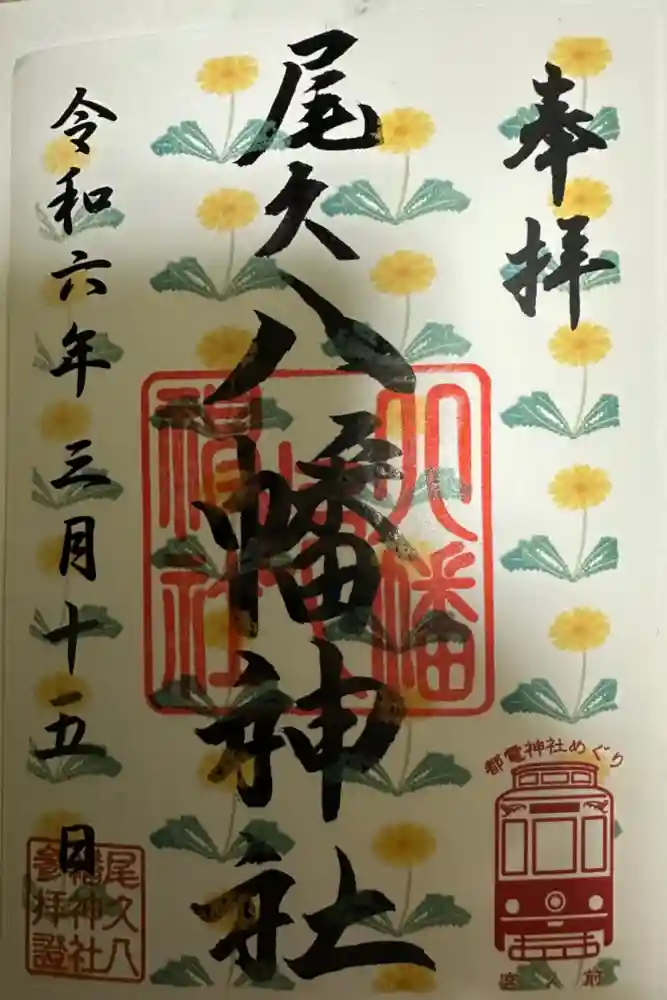 奉拝
尾久八幡神社
令和六年三月十五日
八幡
神社
都電神社めぐり
宮ノ前
尾久八
幡神社
参拝證